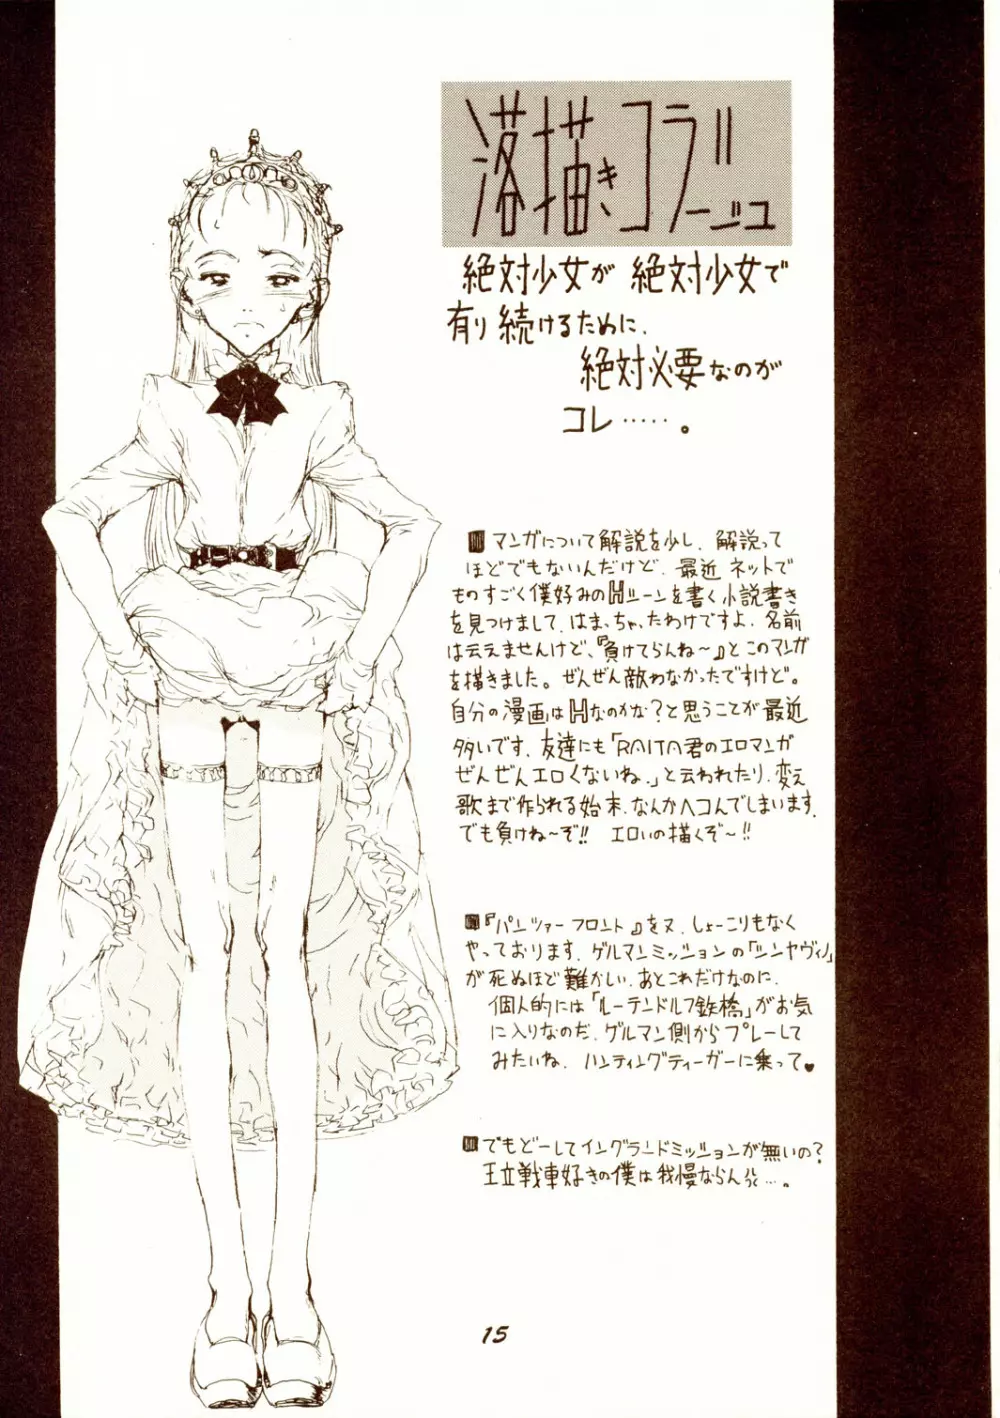 落描きコラージュ
絶対少女が 絶対少女で
有り続けるために、
絶対必要なのが
コレ‥‥‥。
マンガについて解説を少し、解説って
ほどでもないんだけど、最近 ネットで
ものすごく僕好みのHシーンを書く小説書き
を見つけまして、はまっちゃったわけですよ、名前
は云えませんけど、『負けてらんね〜』とこのマンガ
を描きました。ぜんぜん敵わなかったですけど。
自分の漫画はHなのかな?と思うことが最近
多いです、友達にも「RAITA君のエロマンガ
ぜんぜんエロくないね、」と云われたり、変え
歌まで作られる始末、なんかヘコんでしまいます、
でも負けね〜ぞ!! エロいの描くぞ〜!!
『パンツァーフロント』をヌ、しょーこりもなく
やっております、ゲルマンミッションの「シンヤヴィノ」
が死ぬほど難かしい、あとこれだけなのに、
個人的には「ルーデンドルフ鉄橋」がお気
に入りなのだ、ゲルマン側からプレーして
みたいね、ハンティングティーガーに乗って♥
でもどーしてイングランドミッションが無いの?
王立戦車好きの僕は我慢ならん‥‥。
15